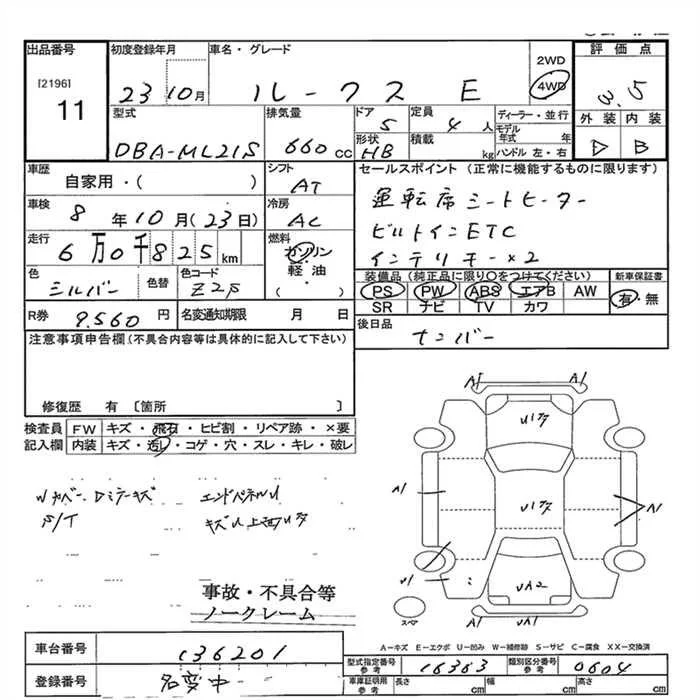 出品番号 初度登録年月 車名・グレード 評価点
[2196] 2WD
11 23 10月 ルークス E 4WD 3.5
型式 排気量 ドア 定員 ディーラー・並行 外装 内装
DBA-ML21S 660cc 5 4人 モデル年式 年
形状 HB 積載 kg ハンドル 左・右 D B
車歴 シフト セールスポイント (正常に機能するものに限ります)
自家用・( ) AT 運転席シートヒーター
車検 8年10月(23日) 冷房 AC ビルトインETC
走行 6万0千825km 燃料 ガソリン インテリキー×2
軽油 装備品(純正品に限り〇をつけてください) 新車保証書
色 シルバー 色替 色コード Z2S ( ) PS PW ABS エアB AW 有・無
SR ナビ TV カワ
R券 9,560円 名変通知期限 月 日 後日品 ナンバー
注意事項申告欄(不具合内容等は具体的に記入して下さい)
修復歴 有 〔箇所 〕
検査員 FW キズ・飛石・ヒビ割・リペア跡・×要
記入欄 内装 キズ・汚レ・コゲ・穴・スレ・キレ・破レ
A1 A1
U1ア
A1 U1ア A1
エンドパネルU
S/T キズU上面
U1 UA2
事故・不具合等
ノークレーム
スペア UA1 UA1
A―キズ E―エクボ U―凹み W―補修跡 S―サビ C―腐食 XX―交換済
車台番号 136201 型式指定番号 参考 16363 類別区分番号 参考 0604
登録番号 名変中 車庫証明用 参考 長さ cm 幅 cm 高さ cm